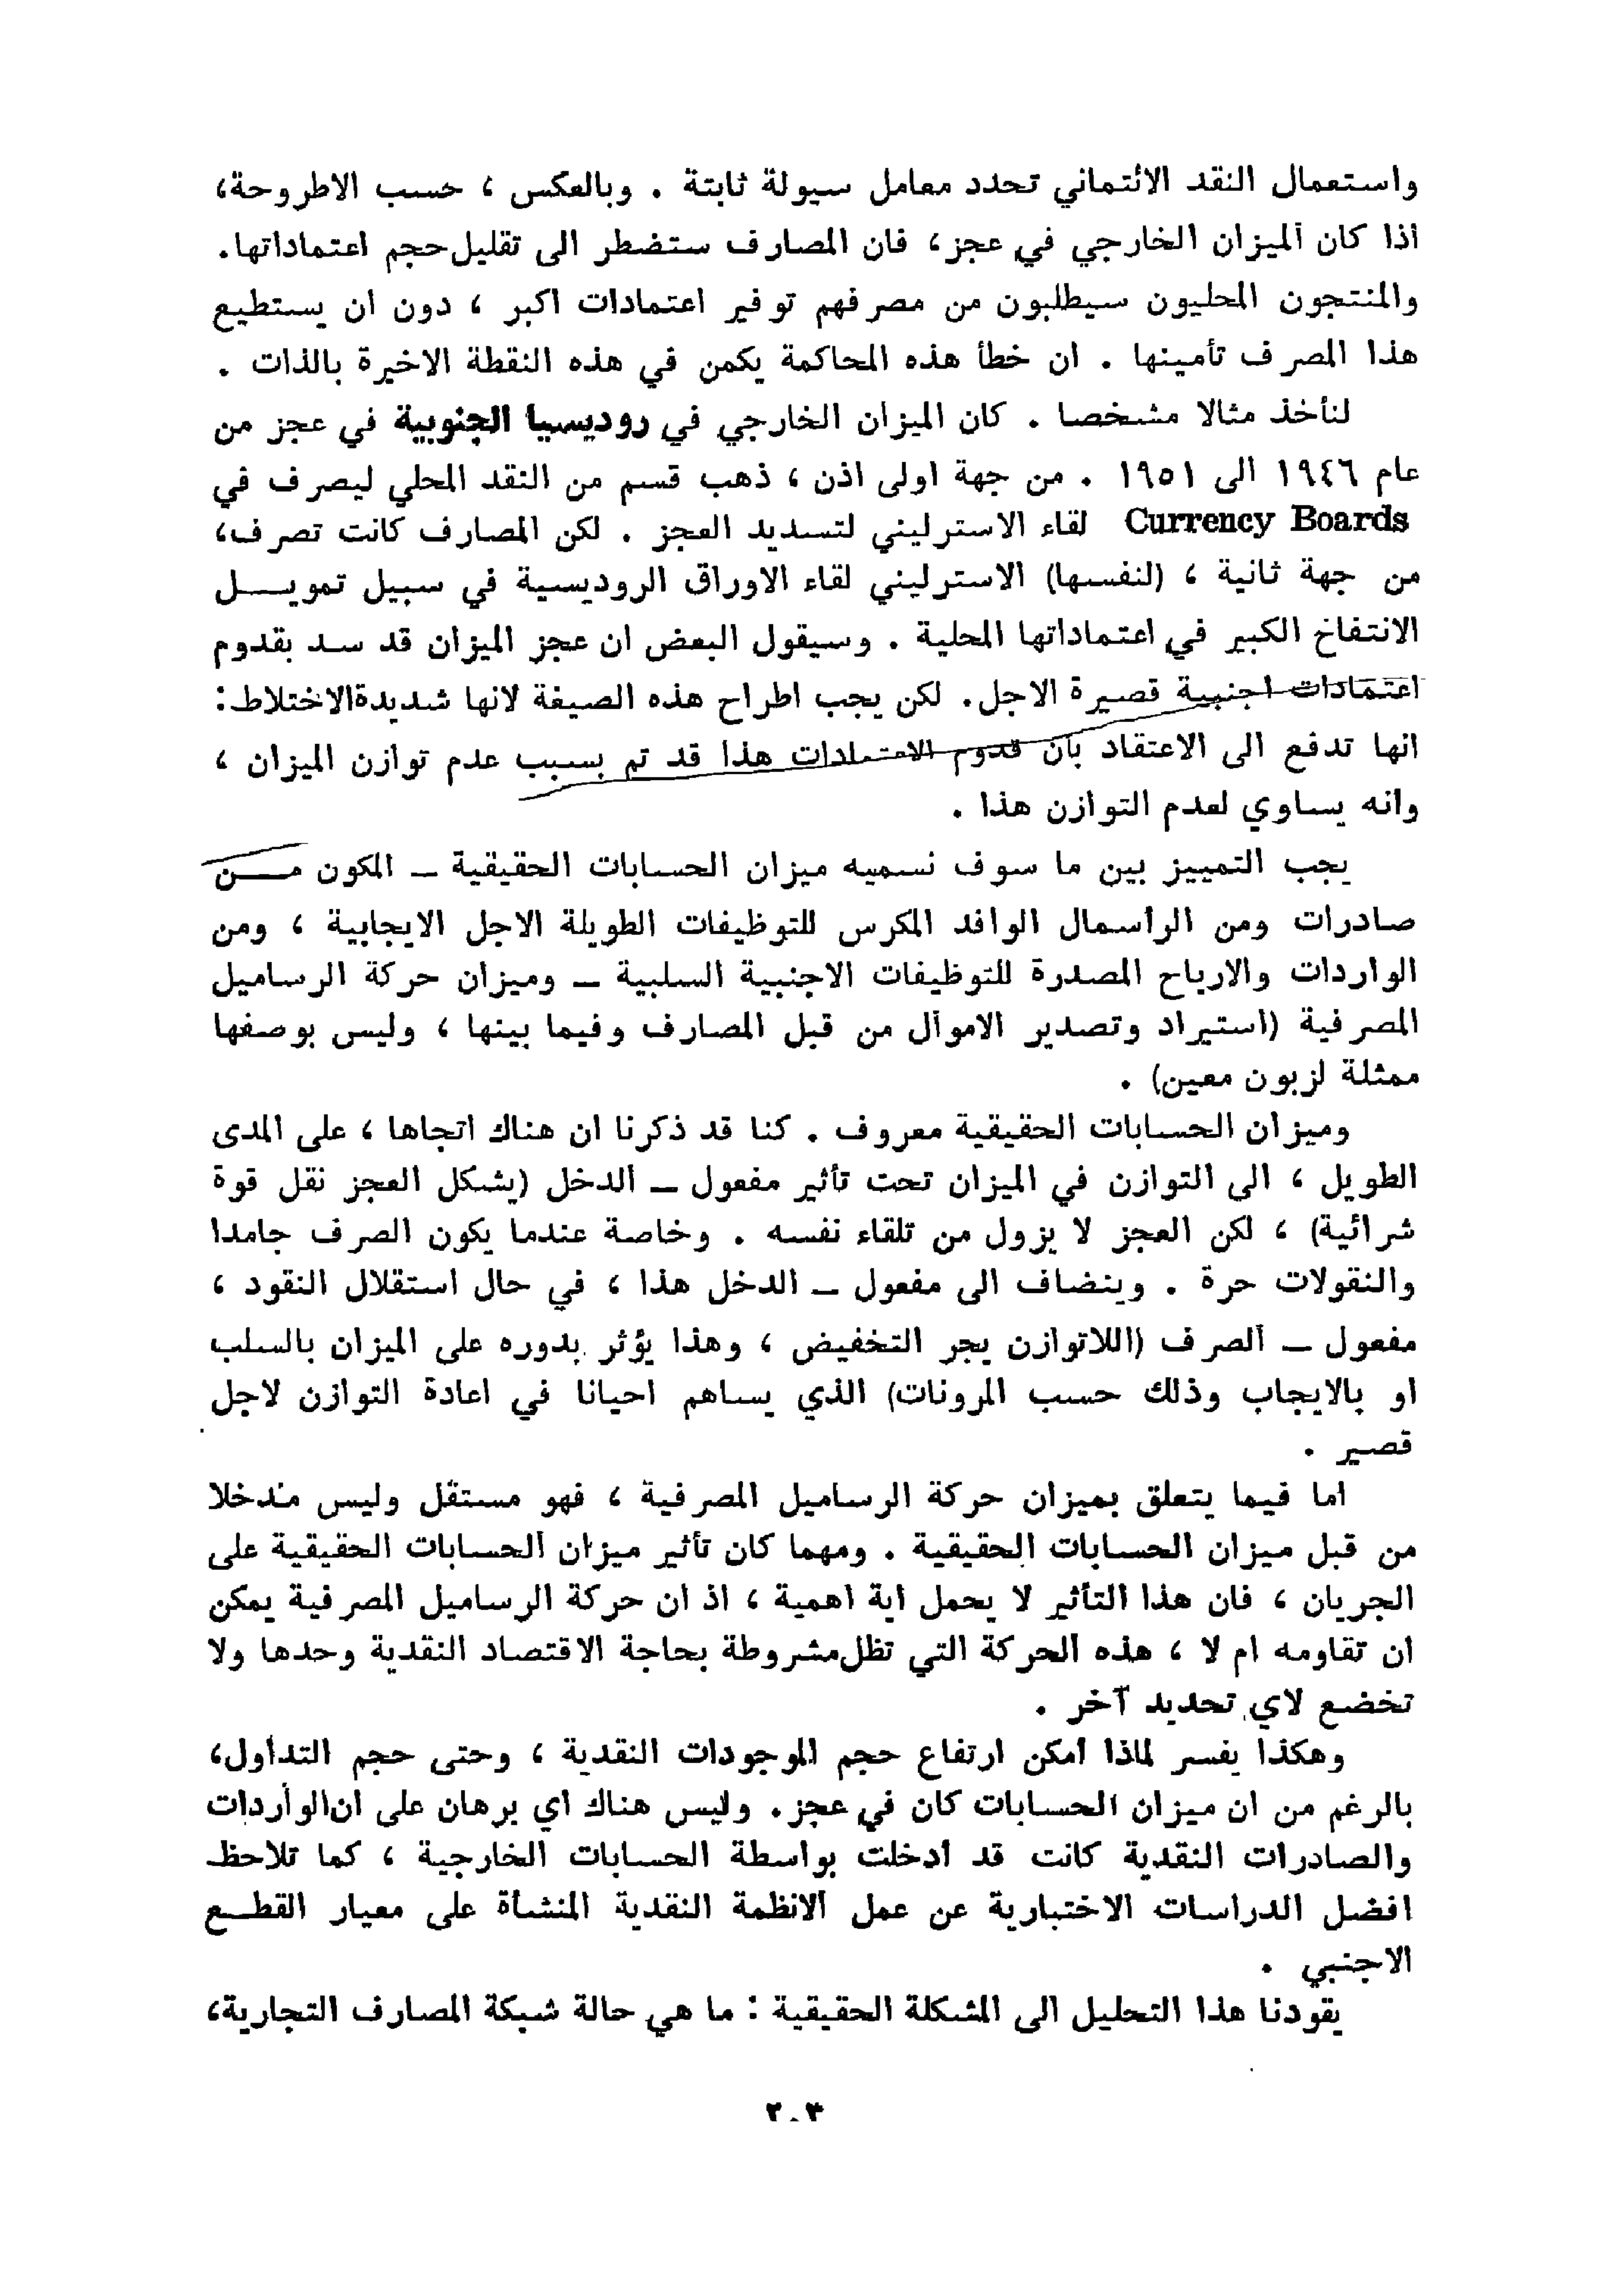 واستعمال النقد الائتماني تحدد معامل سيولة ثابتة . وبالعكس ، حسب الاطروحة،
اذا كان الميزان الخارجي في عجز، فان المصارف ستضطر الى تقليل حجم اعتماداتها.
والمنتجون المحليون سيطلبون من مصرفهم توفير اعتمادات اكبر ، دون ان يستطيع
هذا المصرف تأمينها . ان خطأ هذه المحاكمة يكمن في هذه النقطة الاخيرة بالذات .
لنأخذ مثالا مشخصا . كان الميزان الخارجي في روديسيا الجنوبية في عجز من
عام ١٩٤٦ الى ١٩٥١ . من جهة اولى اذن ، ذهب قسم من النقد المحلي ليصرف في
Currency Boards لقاء الاسترليني لتسديد العجز . لكن المصارف كانت تصرف،
من جهة ثانية ، (لنفسها) الاسترليني لقاء الاوراق الروديسية في سبيل تمويـــل
الانتفاخ الكبير في اعتماداتها المحلية . وسيقول البعض ان عجز الميزان قد سد بقدوم
اعتمادات اجنبية قصيرة الاجل. لكن يجب اطراح هذه الصيغة لانها شديدةالاختلاط:
انها تدفع الى الاعتقاد بان قدوم الاعتمادات هذا قد تم بسبب عدم توازن الميزان ،
وانه يساوي لعدم التوازن هذا .
يجب التمييز بين ما سوف نسميه ميزان الحسابات الحقيقية – المكون مـــن
صادرات ومن الرأسمال الوافد المكرس للتوظيفات الطويلة الاجل الايجابية ، ومن
الواردات والارباح المصدرة للتوظيفات الاجنبية السلبية – وميزان حركة الرساميل
المصرفية (استيراد وتصدير الاموال من قبل المصارف وفيما بينها ، وليس بوصفها
ممثلة لزبون معين) .
وميزان الحسابات الحقيقية معروف . كنا قد ذكرنا ان هناك اتجاها ، على المدى
الطويل ، الى التوازن في الميزان تحت تأثير مفعول – الدخل (يشكل العجز نقل قوة
شرائية) ، لكن العجز لا يزول من تلقاء نفسه . وخاصة عندما يكون الصرف جامدا
والنقولات حرة . وينضاف الى مفعول – الدخل هذا ، في حال استقلال النقود ،
مفعول – الصرف (اللاتوازن يجر التخفيض ، وهذا يؤثر بدوره على الميزان بالسلب
او بالايجاب وذلك حسب المرونات) الذي يساهم احيانا في اعادة التوازن لاجل
قصير .
اما فيما يتعلق بميزان حركة الرساميل المصرفية ، فهو مستقل وليس مندخلا
من قبل ميزان الحسابات الحقيقية . ومهما كان تأثير ميزان الحسابات الحقيقية على
الجريان ، فان هذا التأثير لا يحمل اية اهمية ، اذ ان حركة الرساميل المصرفية يمكن
ان تقاومه ام لا ، هذه الحركة التي تظل مشروطة بحاجة الاقتصاد النقدية وحدها ولا
تخضع لاي تحديد آخر .
وهكذا يفسر لماذا امكن ارتفاع حجم الموجودات النقدية ، وحتى حجم التداول،
بالرغم من ان ميزان الحسابات كان في عجز. وليس هناك اي برهان على ان الواردات
والصادرات النقدية كانت قد ادخلت بواسطة الحسابات الخارجية ، كما تلاحظ
افضل الدراسات الاختبارية عن عمل الانظمة النقدية المنشأة على معيار القطــع
الاجنبي .
يقودنا هذا التحليل الى المشكلة الحقيقية : ما هي حالة شبكة المصارف التجارية،
٢٠٣